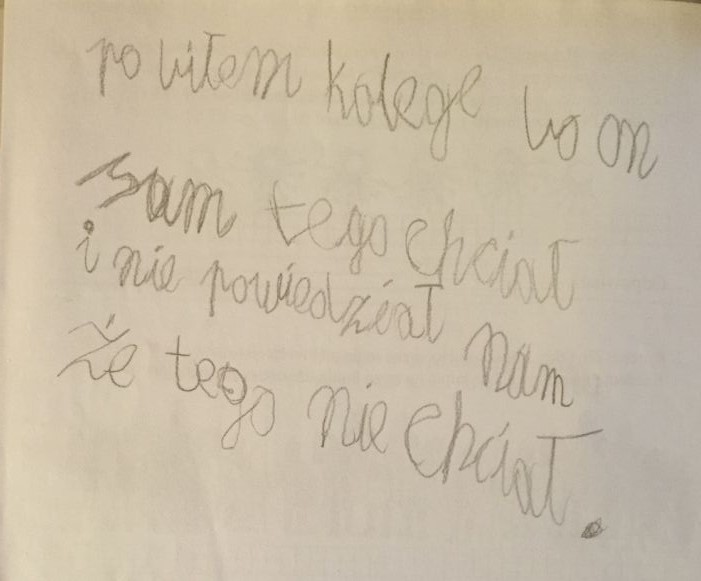 pobiłem kolege bo on
sam tego chciał
i nie powiedział nam
że tego nie chciał.